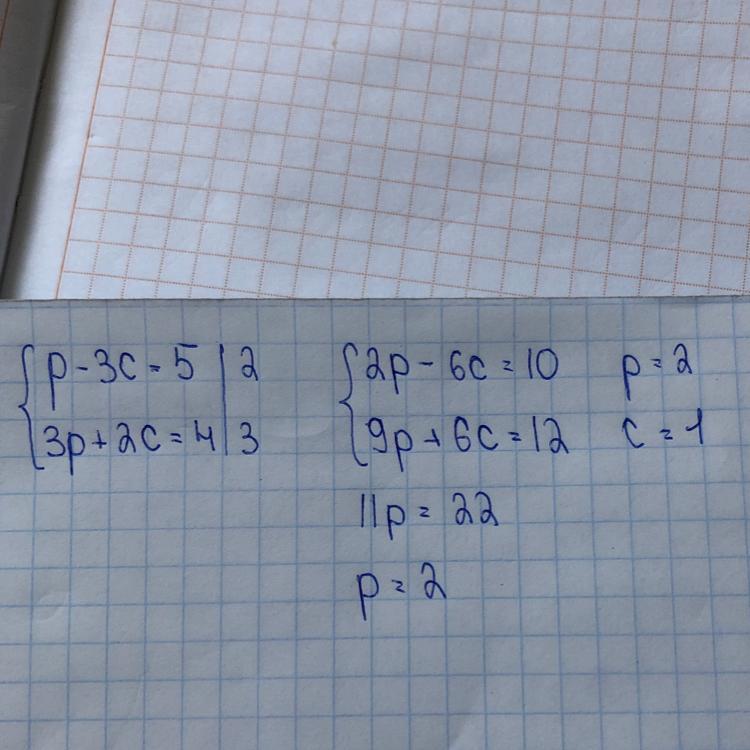 p - 3c = 5 | 2
3p + 2c = 4 | 3
2p - 6c = 10
9p + 6c = 12
11p = 22
p = 2
p = 2
c = 1